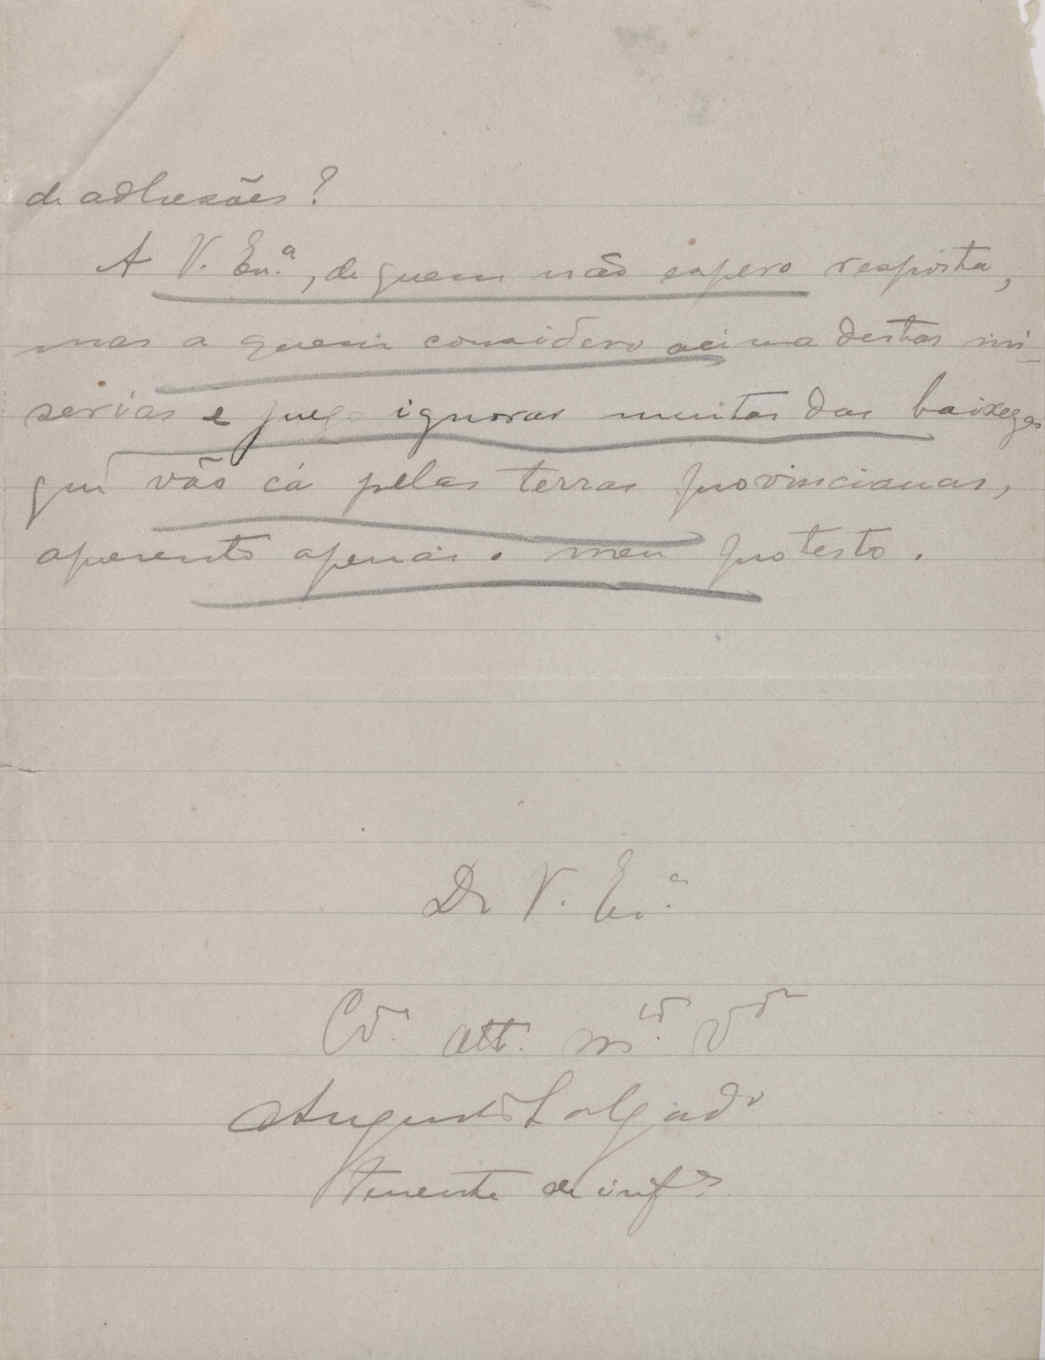 de adhesões?
A V. Ex.ª, de quem não espero resposta,
mas a quem considero acima destas mi-
serias e julgo ignorar muitas das baixezas
que vão cá pelas terras provincianas,
apresento apenas o meu protesto.
De V. Ex.ª
Cdº. att. m.to V.dor
Augusto Salgado
Tenente de inf.ª